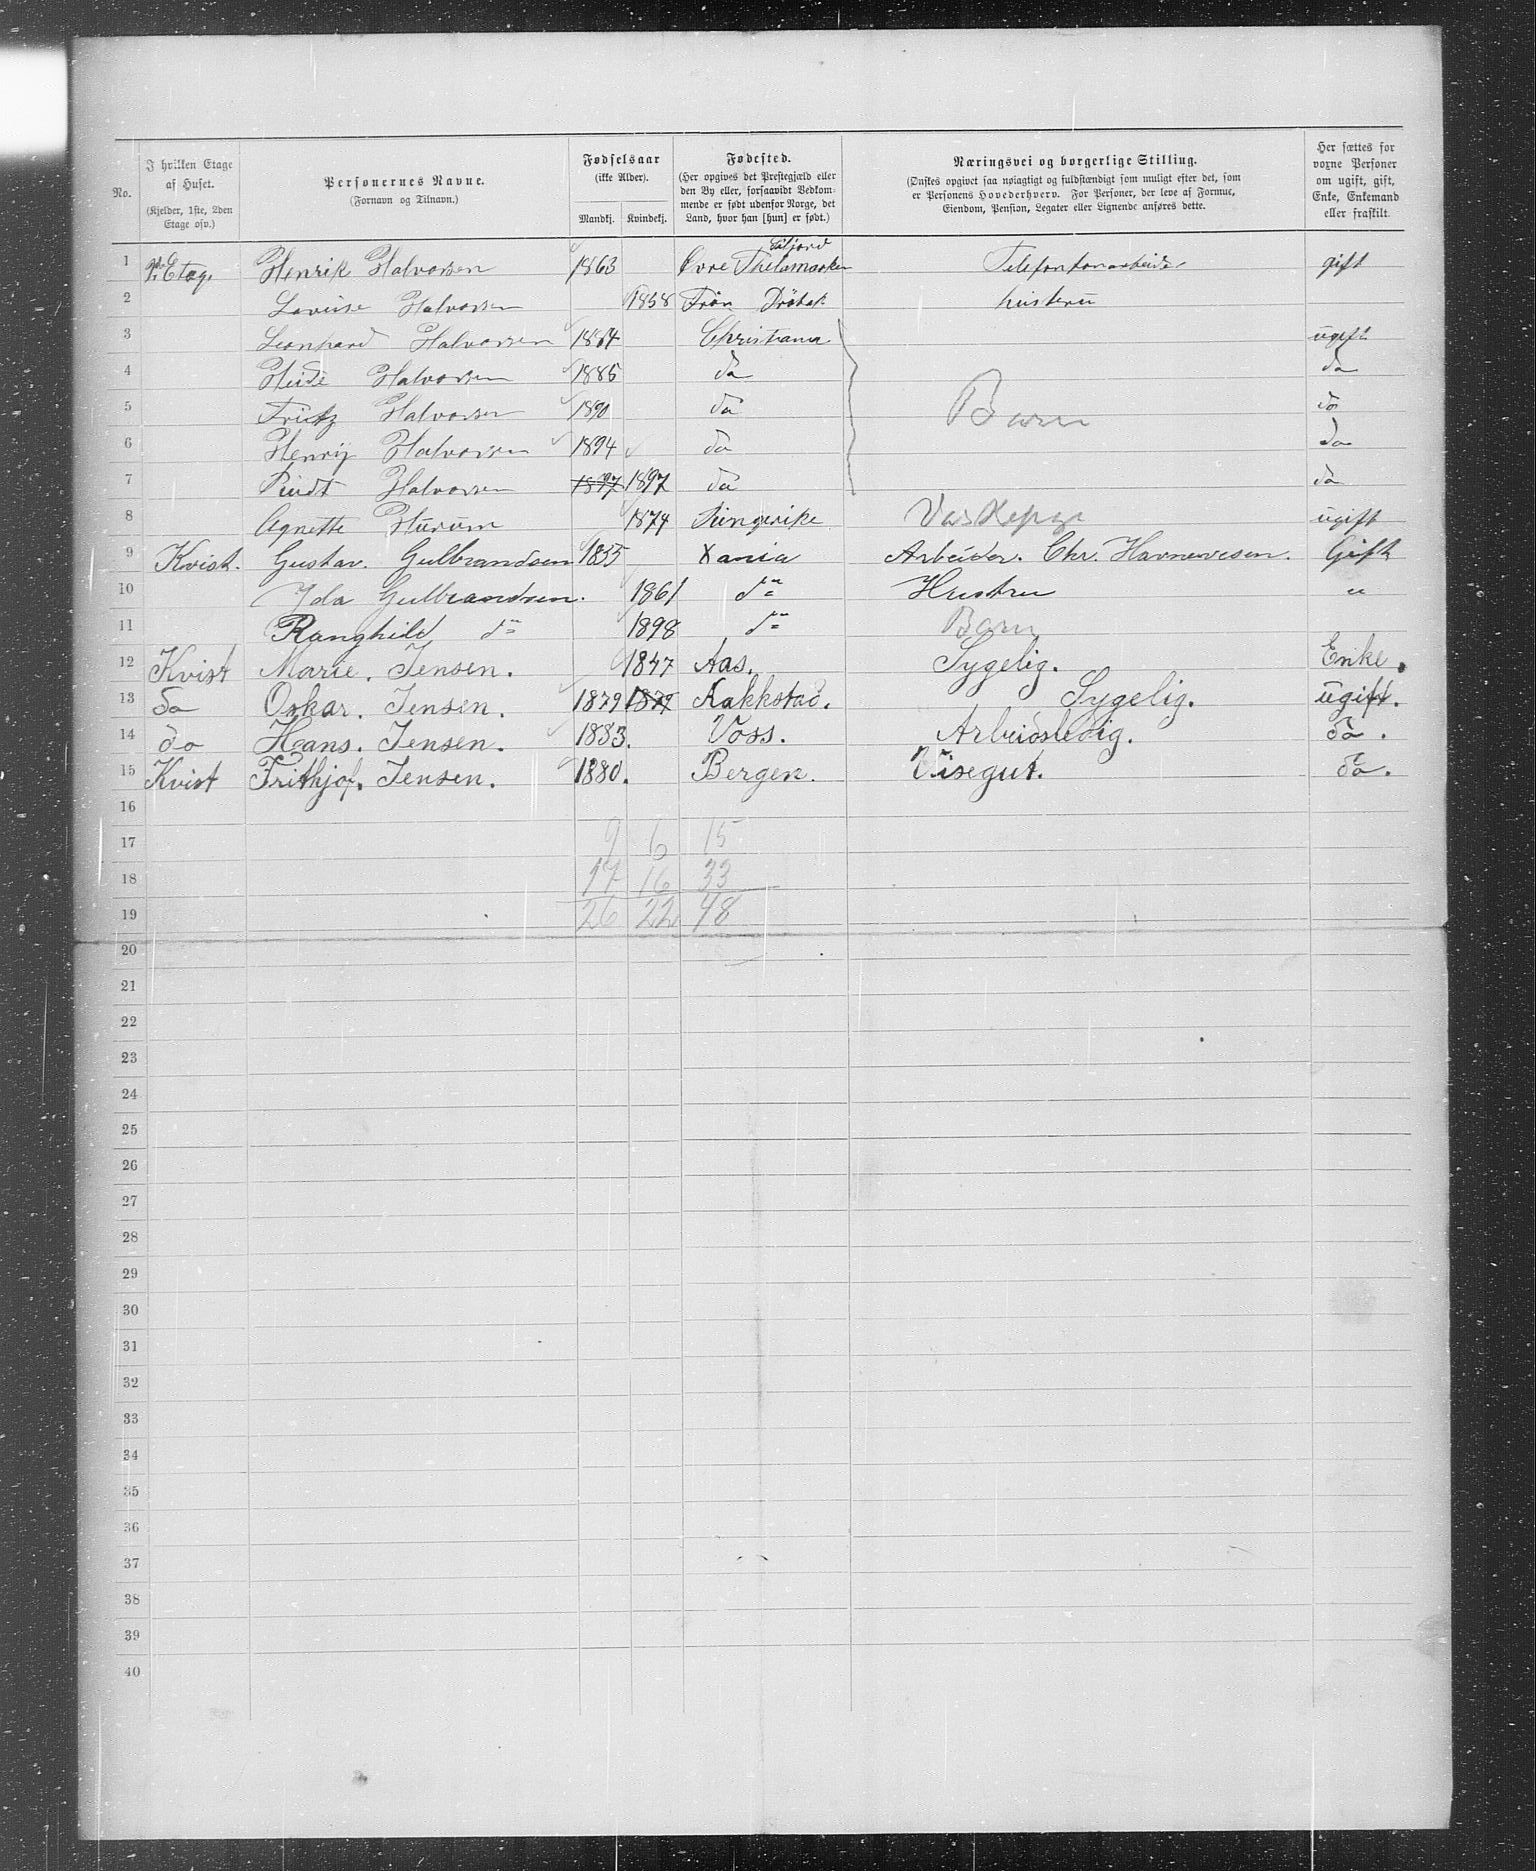 No.
I hvilken Etage af Huset.
(Kjelder, 1ste, 2den Etage osv.)
Personernes Navne.
(Fornavn og Tilnavn.)
Fødselsaar
(ikke Alder).
Mandkj. Kvindekj.
Fødested.
(Her opgives det Prestegjæld eller
den By eller, forsaavidt Vedkom-
mende er født udenfor Norge, det
Land, hvor han [hun] er født.)
Næringsvei og borgerlige Stilling.
(Ønskes opgivet saa nøiagtigt og fuldstændigt som muligt efter det, som
er Personens Hovederhverv. For Personer, der leve af Formue,
Eiendom, Pension, Legater eller Lignende anføres dette.
Her sættes for
voxne Personer
om ugift, gift,
Enke, Enkemand
eller fraskilt.
1 Etag. Henrik Halvorsen 1863 Øvre Thelemarken Telefonarbeider gift
2 Lovise Halvorsen 1858 Drøbak hustru
3 Leonhard Halvorsen 1884 Christiania ugift
4 Halvorsen 1886 do do
5 Fritz Halvorsen 1890 do Barn do
6 Henrij Halvorsen 1894 do do
7 Halvorsen 1897 1897 do do
8 Agnette Hurum 1874 Ringerike ugift
9 Kvist. Gustav. Gulbrandsen 1855 Xania Arbeider. Chr. Havnevesen. Gift
10 Ida Gulbrandsen. 1861 do Hustru "
11 Ranghild do 1898 do Barn
12 Kvist Marie. Jensen. 1847 Aas. Sygelig. Enke.
13 do Oskar. Jensen. 1879 1879 Rakkstad. Sygelig. ugift.
14 do Hans. Jensen. 1883. Voss. Arbeidsledig. do.
15 Kvist Frithjof. Jensen. 1880. Bergen. Visegut. do.
16
17 9 6 15
18 17 16 33
19 26 22 48
20
21
22
23
24
25
26
27
28
29
30
31
32
33
34
35
36
37
38
39
40